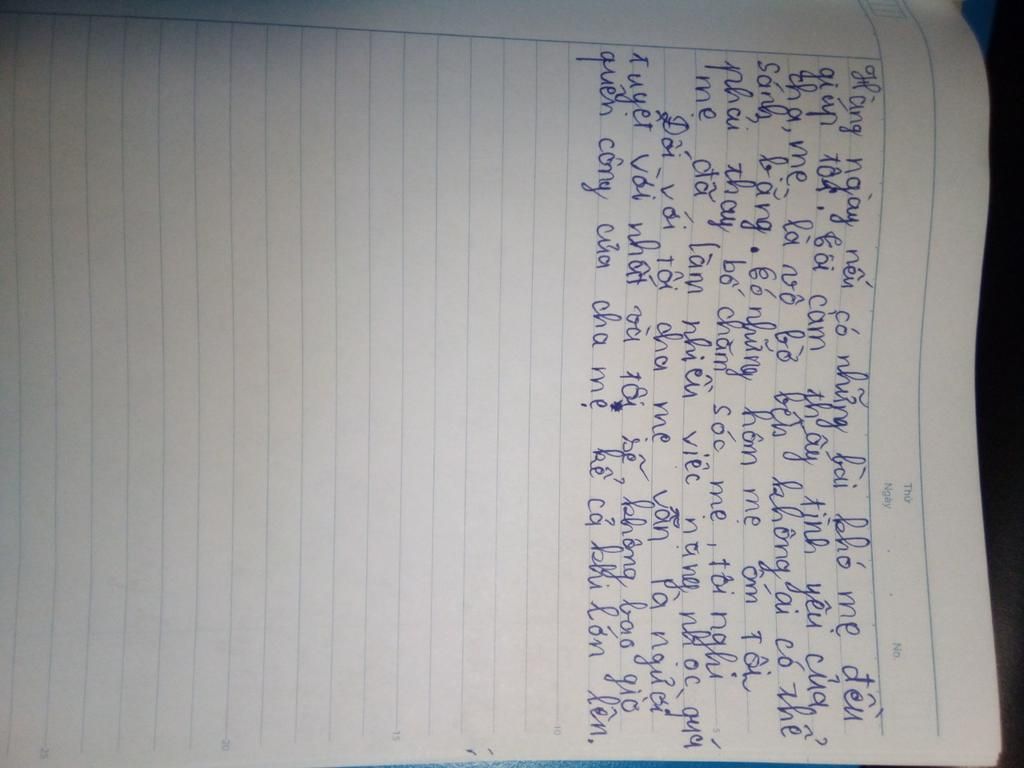 Thứ
Ngày
No.
Hàng ngày nếu có những bài khó mẹ đều
giúp tôi. Tôi cảm thấy tình yêu của
cha, mẹ là vô bờ bến không ai có thể
sánh bằng. Có những hôm mẹ ốm tôi
phải thay bố chăm sóc mẹ, tôi nghĩ
mẹ đã làm nhiều việc nặng nhọc quá
Đối với tôi cha mẹ vẫn là người
tuyệt vời nhất và tôi sẽ không bao giờ
quên công của cha mẹ kể cả khi lớn lên.
5
10
15
20
25